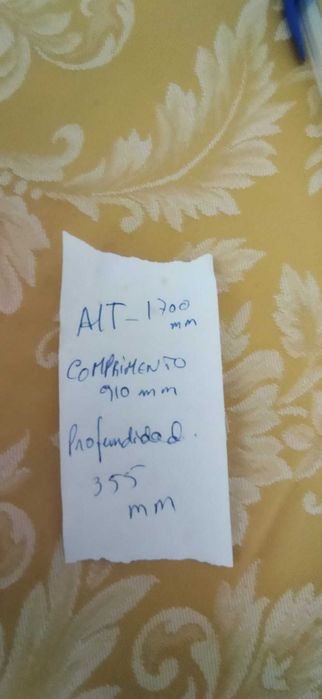 ALT - 1700
mm
COMPRIMENTO
910 mm
Profundidad.
355
mm